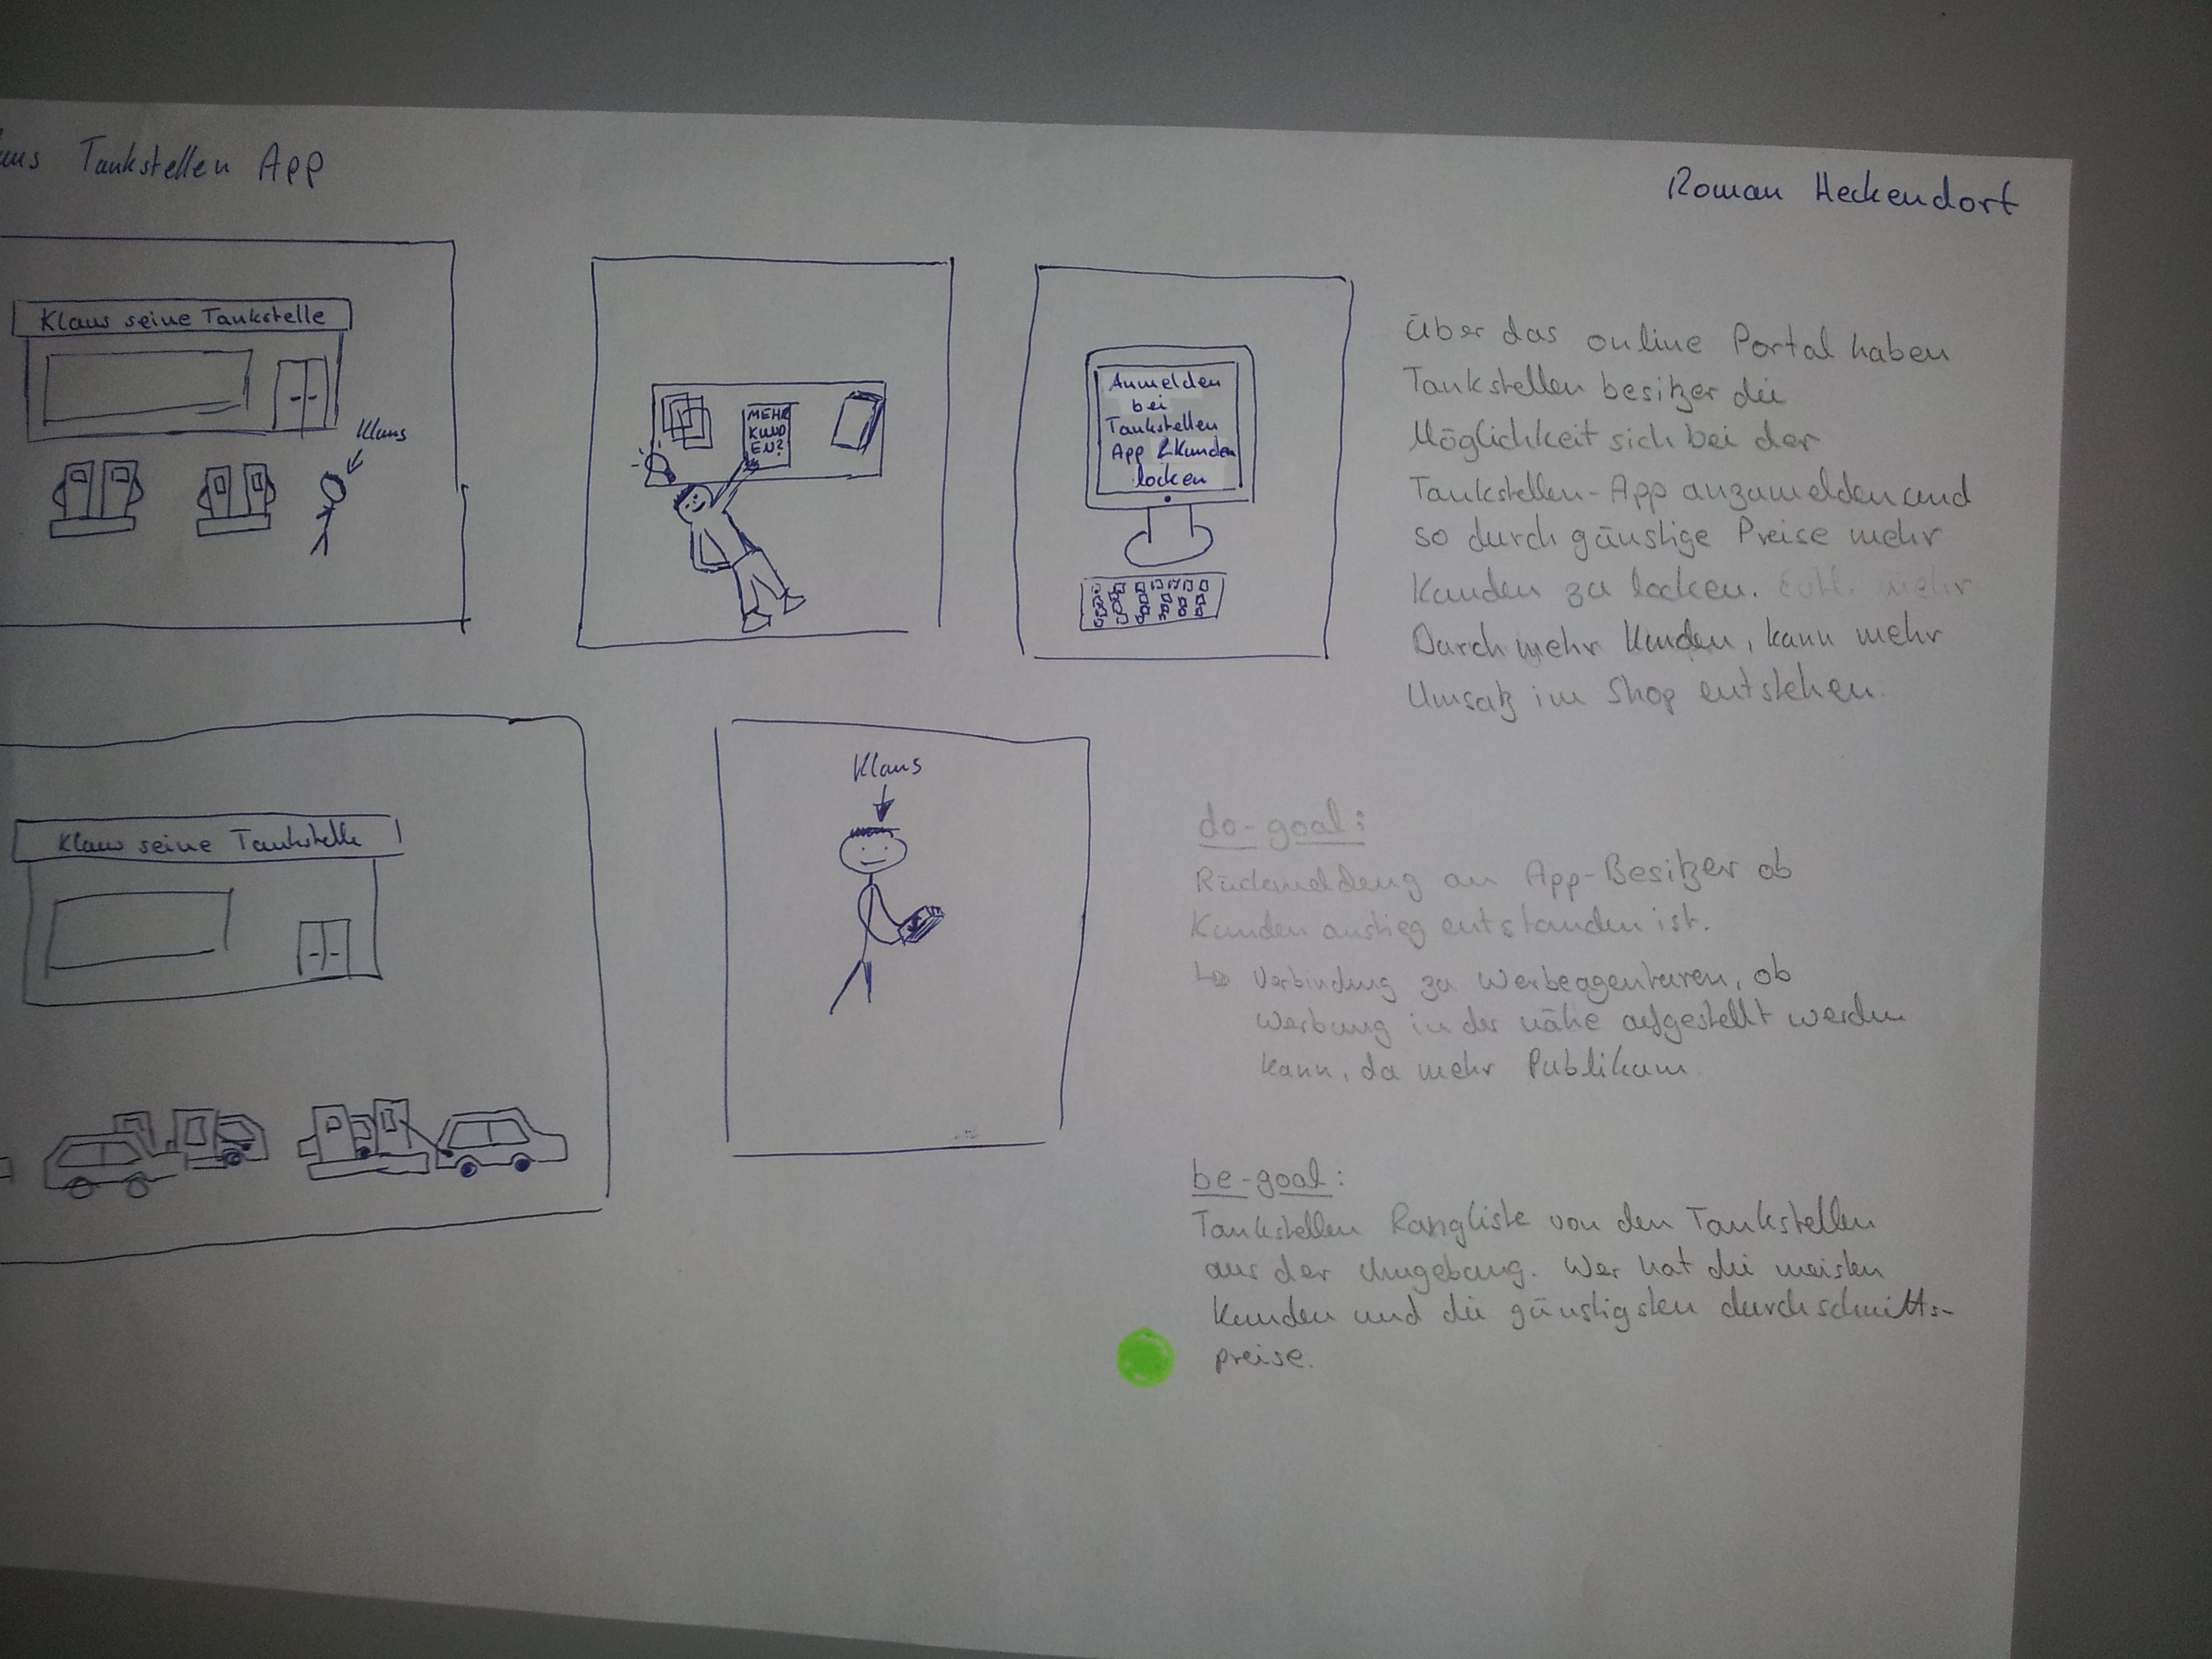 Tankstellen App
Roman Heckendorf
Klaus seine Tankstelle
Klaus
MEHR
KUND
EN?
Anmelden
bei
Tankstellen
App & Kunden
locken
Über das online Portal haben
Tankstellen besitzer die
Möglichkeit sich bei der
Tankstellen-App anzumelden und
so durch günstige Preise mehr
Kunden zu locken. mehr
Durch mehr Kunden, kann mehr
Umsatz im Shop entstehen.
Klaus seine Tankstelle
Klaus
do-goal:
Rückmeldung an App-Besitzer ob
Kunden anstieg entstanden ist.
↳ Verbindung zu Werbeagenturen, ob
Werbung in der nähe aufgestellt werden
kann, da mehr Publikum
be-goal:
Tankstellen Rangliste von den Tankstellen
aus der Umgebung. Wer hat die meisten
Kunden und die günstigsten durchschnitts-
preise.